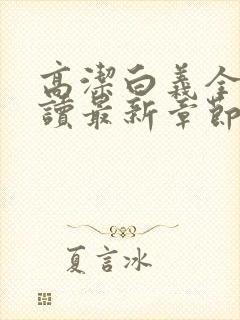 高潔白義全
讀最新章節
夏言冰